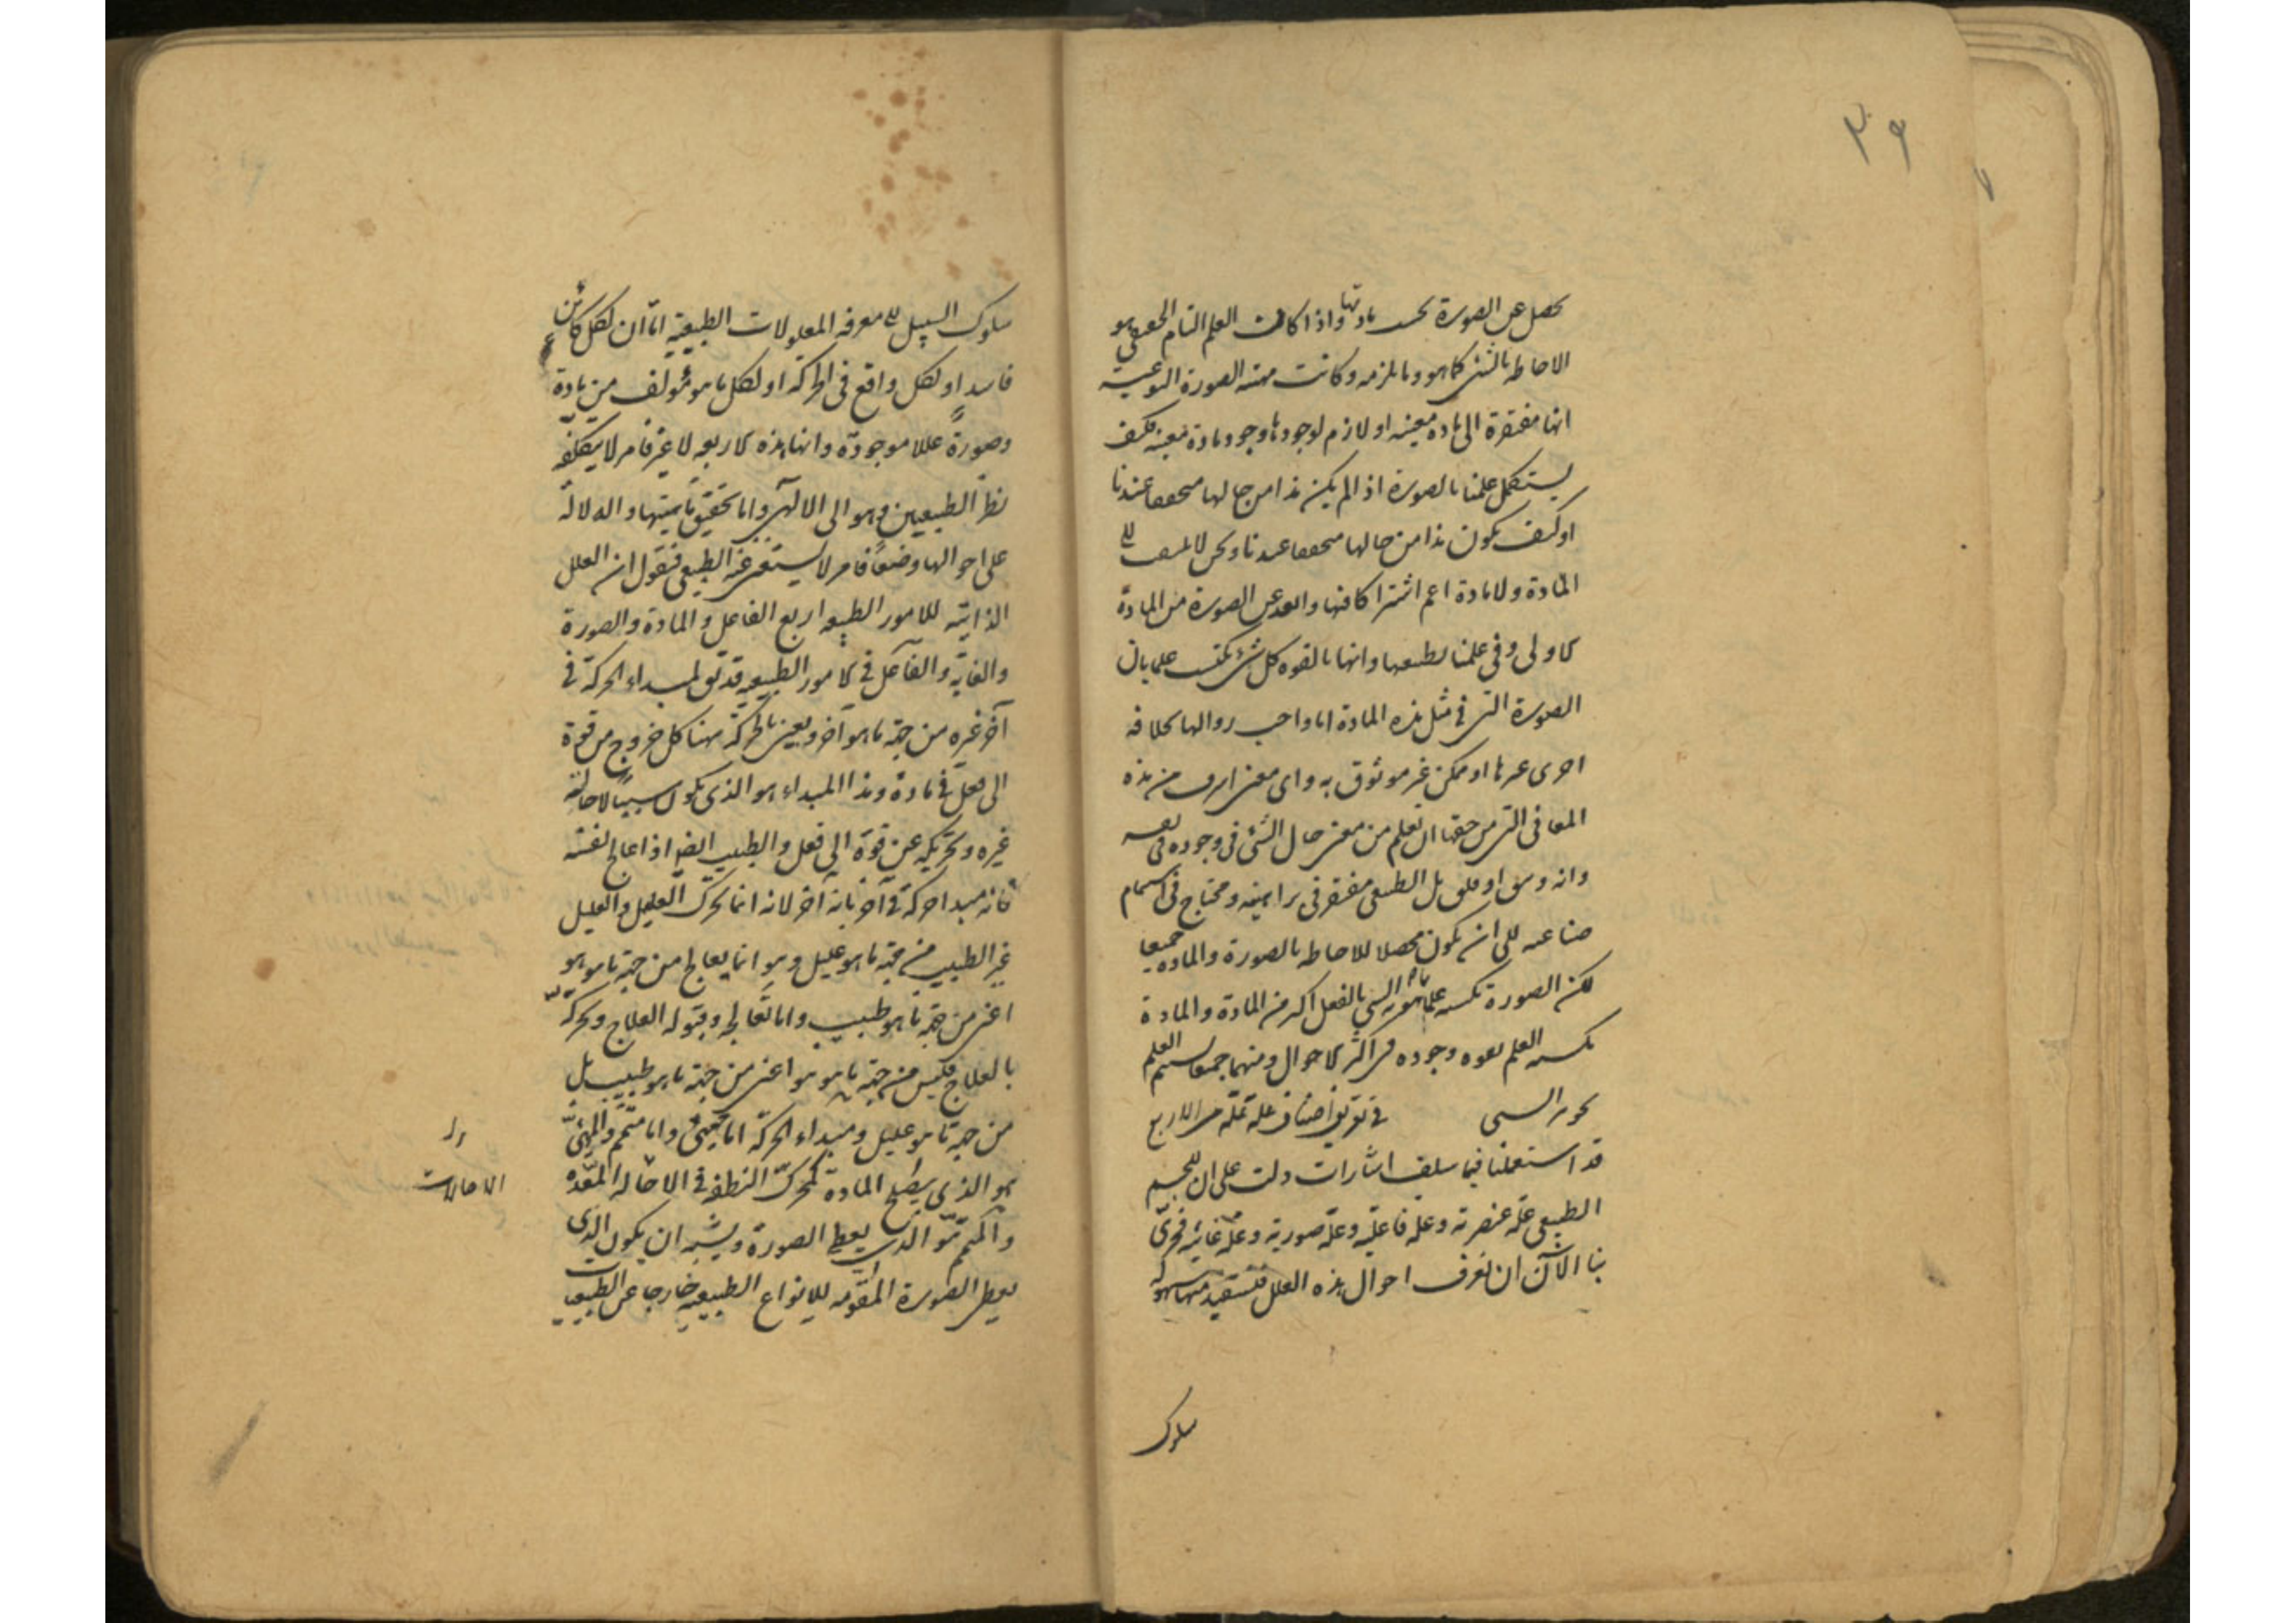 يحصل عن الصورة بحسب مادتها واذا كانت العلم التام الحقيقى هو
الاحاطه بالشئ كما هو وما يلزمه وكانت مهية الصورة النوعية
انها مفتقرة الى مادة معينه او لازم لوجودها وجود مادة معينه فكيف
يستكمل علمنا بالصورة اذا لم يكن هذا من حالها متحققا عندنا
او كيف يكون هذا من حالها متحققا عندنا ونحن لا نلتفت الى
المادة ولا مادة اعم اشتراكا فيها وابعد عن الصورة من المادة
الاولى وفى علمنا بطبيعتها وانها بالقوه كل شئ نكتسب علما بان
الصورة التى فى مثل هذه المادة اما واجب زوالها بخلافه
اخرى غيرها او ممكن غير موثوق به واى معنى اشرف من هذه
المعانى التى من حقها ان تعلم من معنى حال الشئ فى وجوده فى نفسه
وانه وثيق او قلق بل الطبيعى مفتقر فى براهينه ومحتاج فى استتمام
صناعته الى ان يكون محصلا للاحاطه بالصورة والماده جميعا
لكن الصورة تكسبه علما بما هوية الشئ بالفعل اكثر من المادة والمادة
تكسبه العلم بقوه وجوده فى اكثر الاحوال ومنهما جميعا يستتم العلم
بجوهر الشئ فى تعريف اصناف علة علة من الاربع
قد استعملنا فيما سلف اشارات دلت على ان للجسم
الطبيعى علة عنصرية وعلة فاعليه وعلة صورية وعلة غائيه فحرى
بنا الآن ان نعرف احوال هذه العلل فنستفيد منها سهولة
سلوك
سلوك السبيل الى معرفه المعلولات الطبيعية اما ان لكل كائن
فاسد او لكل واقع فى الحركه او لكل ما هو مؤلف من مادة
وصورة عللا موجودة وانها هذه الاربعه لا غير فامر لا يتكلفه
نظر الطبيعيين وهو الى الالهى واما تحقيق ماهيتها والدلالة
على احوالها وضعا فامر لا يستغنى عنه الطبيعى فنقول ان العلل
الذاتية للامور الطبيعه اربع الفاعل والمادة والصورة
والغاية والفاعل فى الامور الطبيعيه قد يق لمبداء الحركة فى
آخر غيره من جهة ما هو آخر ويعنى بالحركة هٰهنا كل خروج من قوة
الى فعل فى مادة وهذا المبداء هو الذى يكون سببا لاحالة
غيره وتحريكه عن قوة الى فعل والطبيب ايضا اذا عالج نفسه
فانه مبدا حركة فى آخر بانه آخر لانه انما يحرك العليل والعليل
غير الطبيب من جهة ما هو عليل وهو انما يعالج من جهة ما هو هو
اعنى من جهة ما هو طبيب واما تعالجه وقبوله العلاج وتحركه
بالعلاج فليس من جهة ما هو هو اعنى من جهة ما هو طبيب بل
من جهة ما هو عليل ومبداء الحركة اما مهيئ واما متمم والمهيئ
هو الذى يصلح المادة كمحرك النطفه فى الاحاله المعده
والمتمم هو الذى يعطى الصورة ويشبه ان يكون الذى
يعطى الصورة المقومه للانواع الطبيعيه خارجا عن الطبيعيات
الاحالات